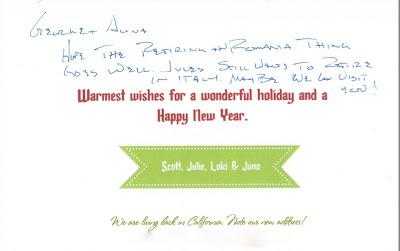 GEORGE + ANNA
HOPE THE RETIRING IN ROMANIA THING
GOES WELL. JULES STILL WANTS TO RETIRE
IN ITALY. MAYBE WE CAN VISIT
YOU!
Warmest wishes for a wonderful holiday and a
Happy New Year.
Scott, Julie, Loki & Juno
We are living back in California. Note our new address!